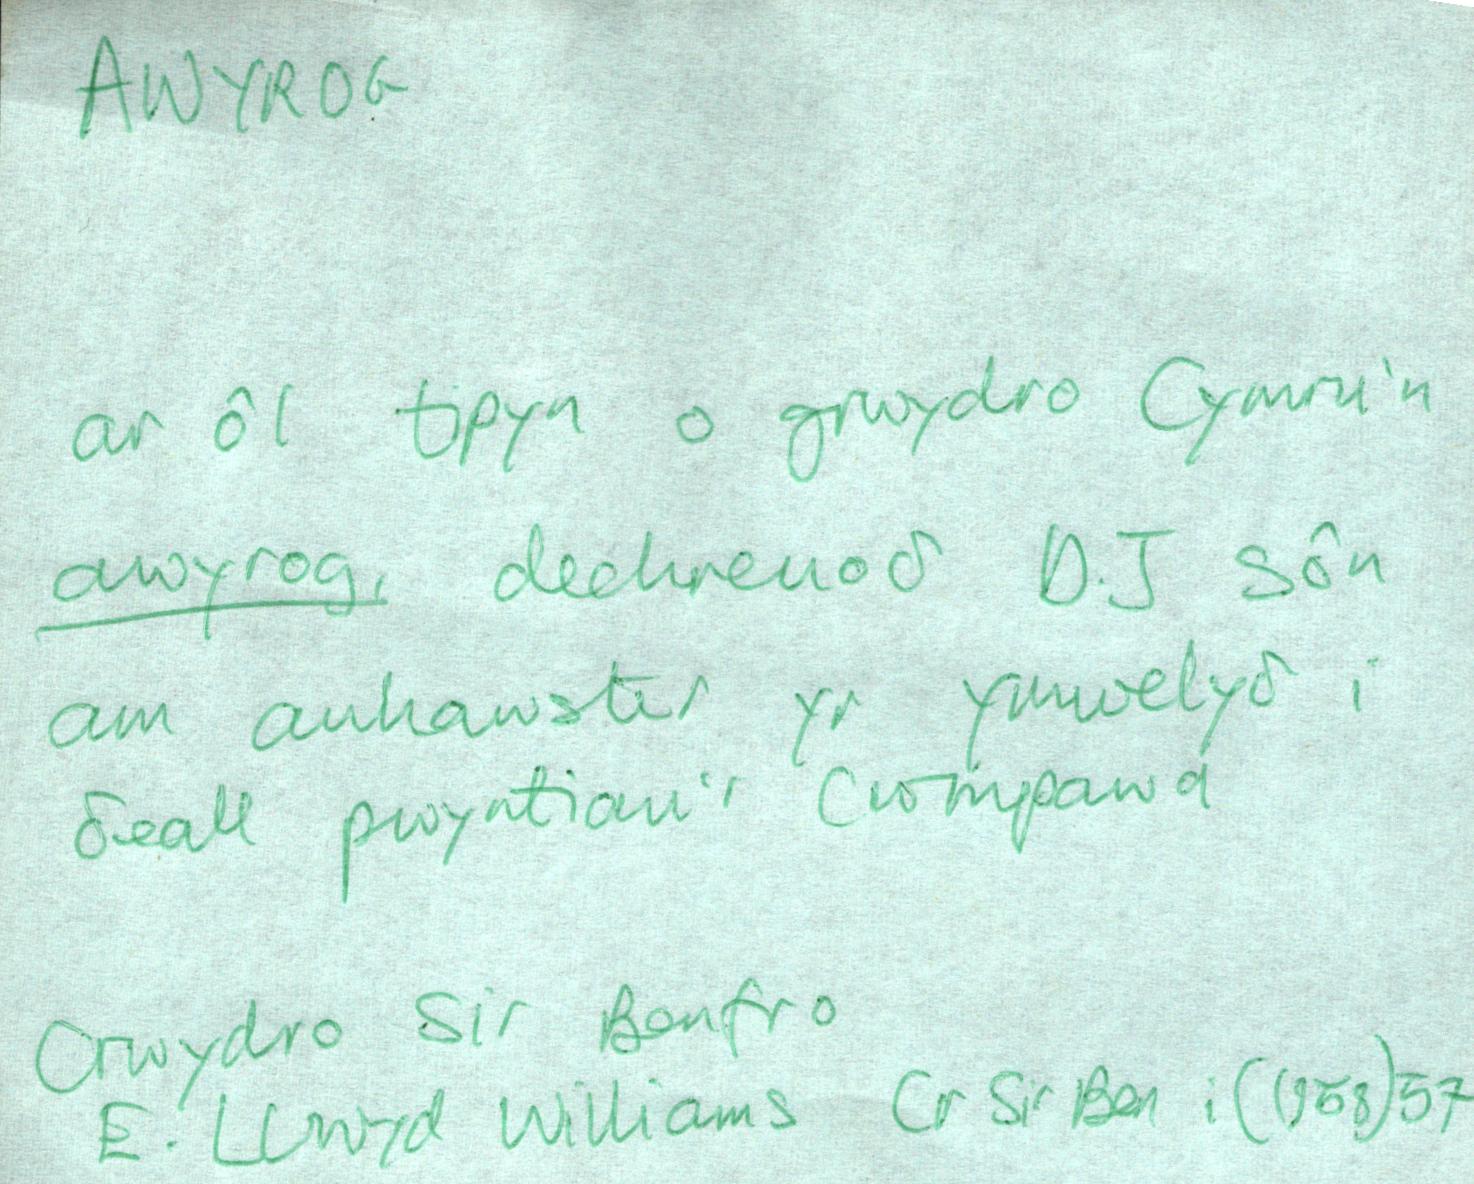 AWYROG
ar ôl tipyn o grwydro Cymru'n
awyrog, dechreuoδ D.J sôn
am anhawster yr ymwelyδ i
δeall pwyntiau'r cwmpawd
Crwydro Sir Benfro
E. Llwyd Williams Cr Sir Ben i (1958) 57